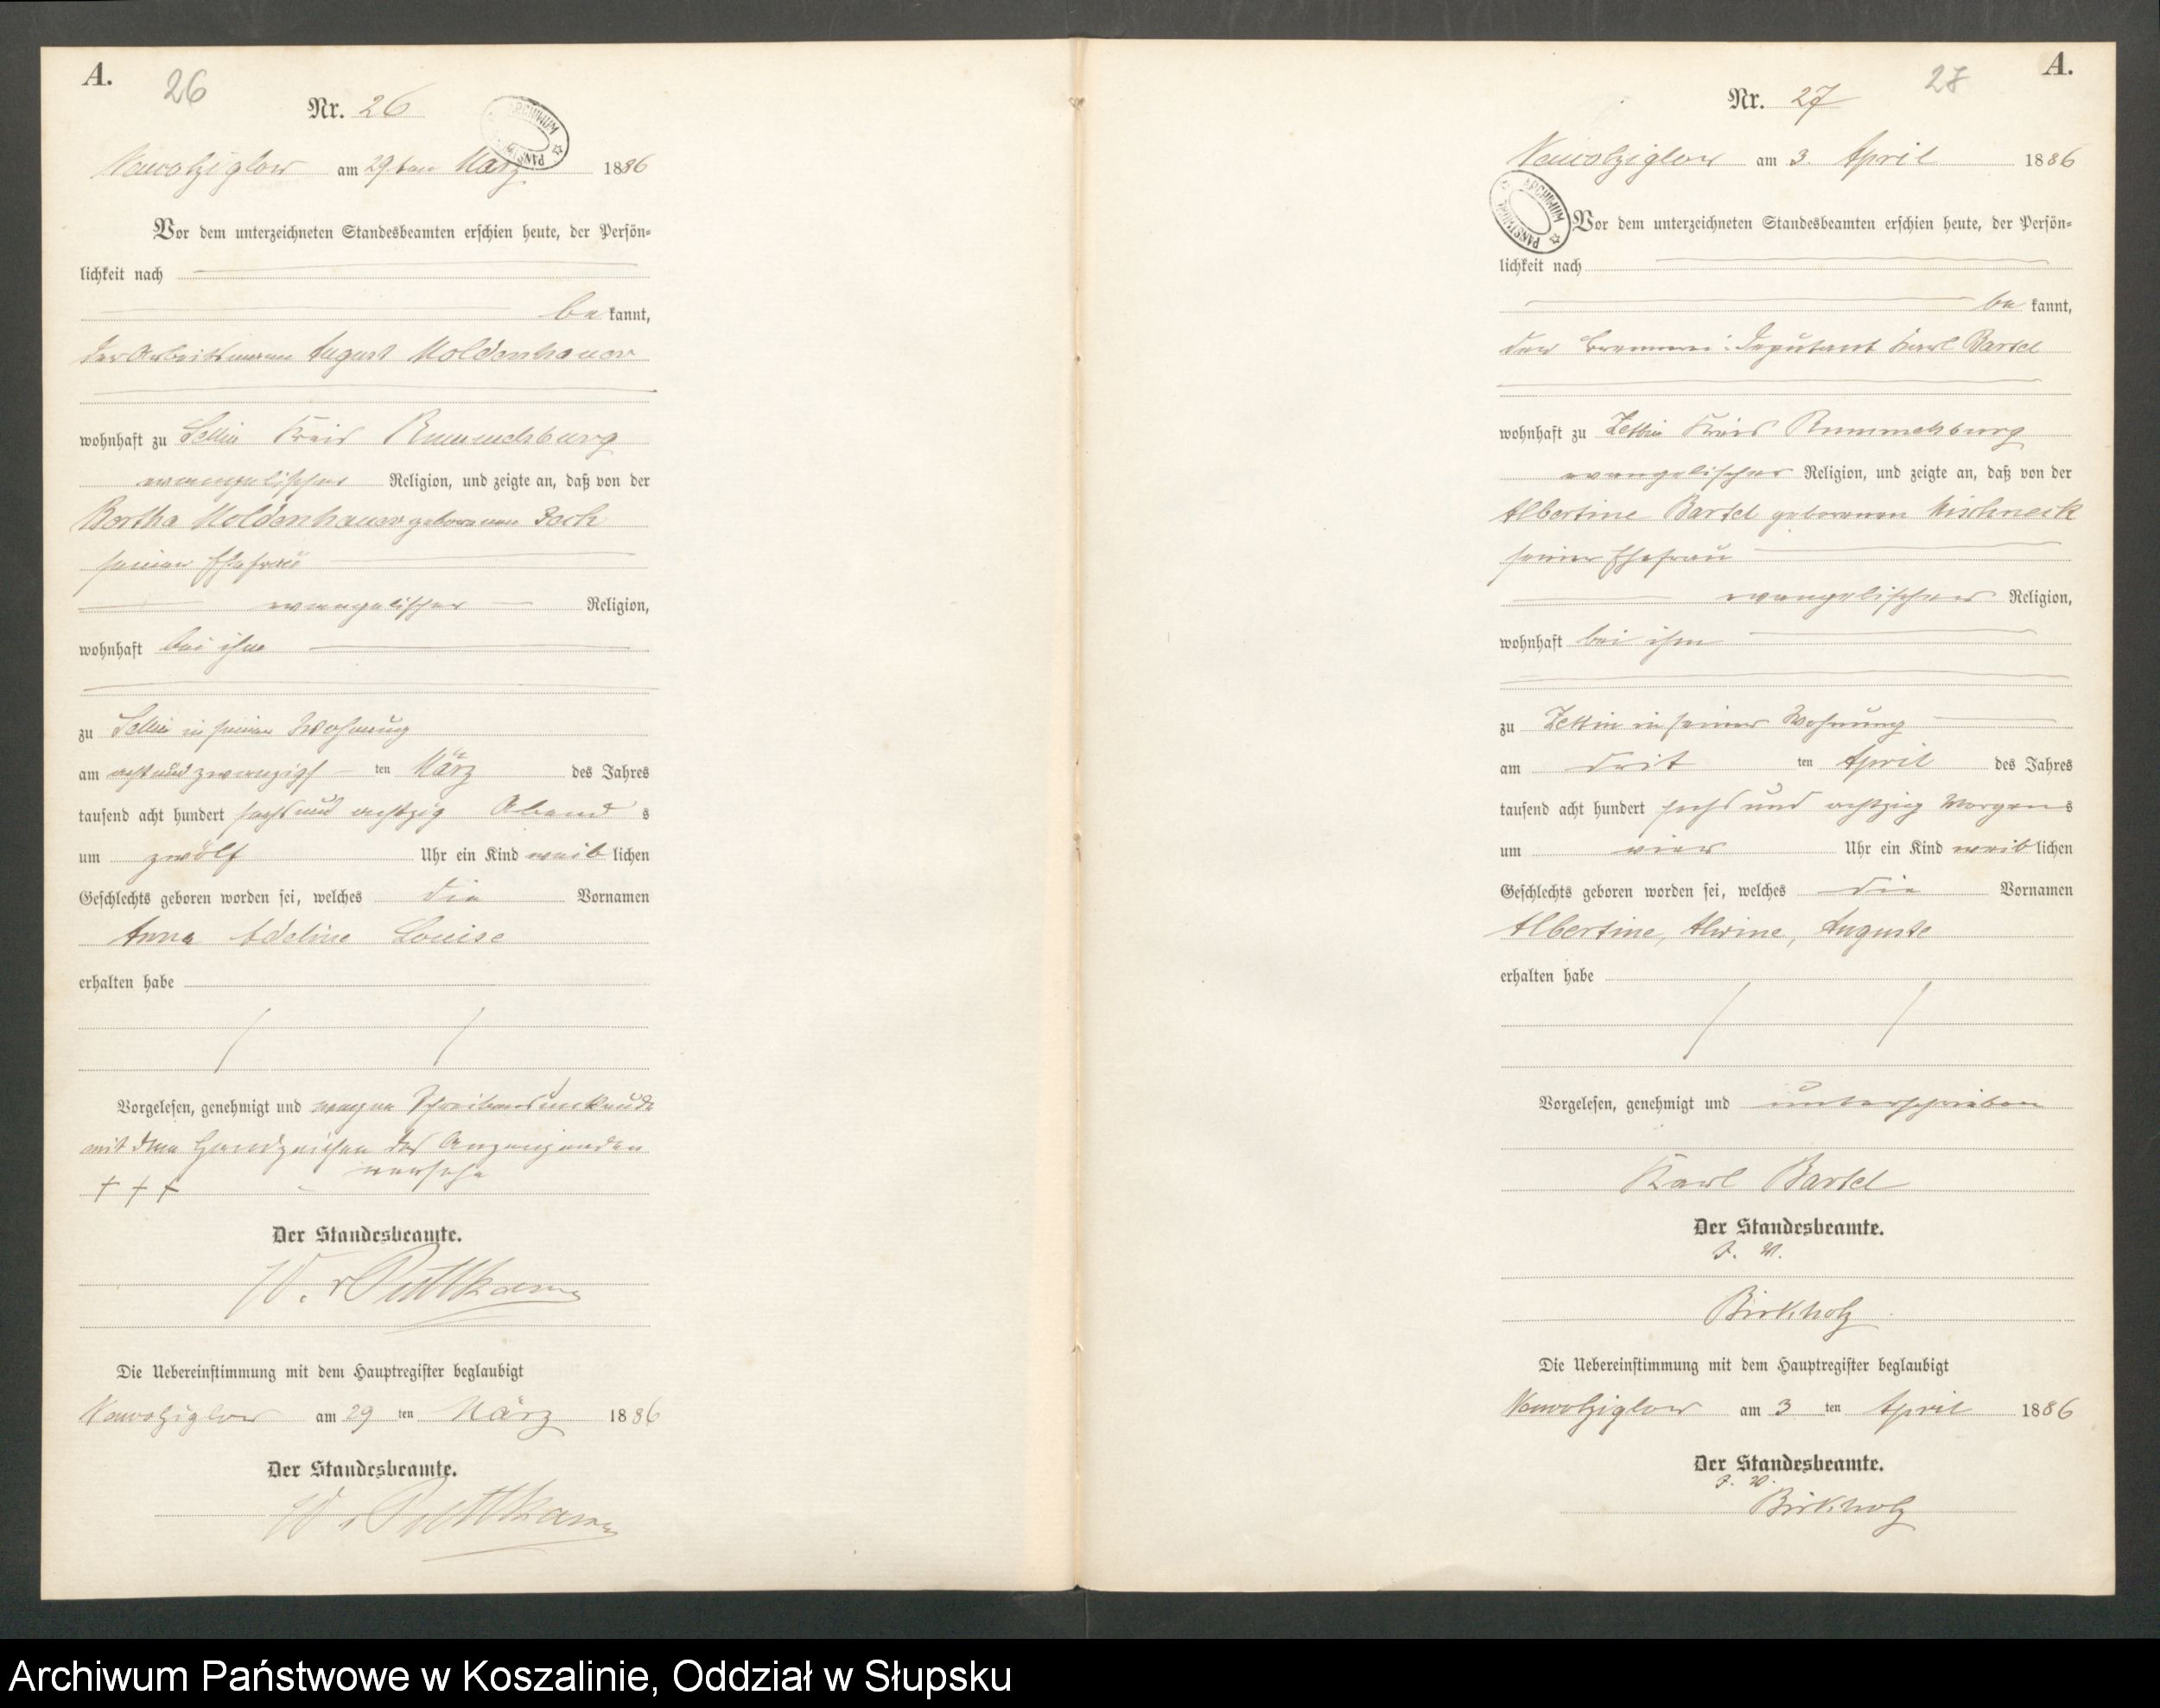 A.
26
Nr. 26
ARCHIWUM PAŃSTW
Nowolziglow am 29. ten März 1886
Vor dem unterzeichneten Standesbeamten erschien heute, der Persön=
lichkeit nach
be kannt,
der Arbeitsmann August Moldenhauer
wohnhaft zu Sellin Kreis Rummelsburg
evangelischer Religion, und zeigte an, daß von der
Bertha Moldenhauer geborenen
seiner Ehefrau
evangelischer Religion,
wohnhaft bei ihm
zu Sellin in seiner Wohnung
am acht und zwanzigs ten März des Jahres
tausend acht hundert sechs und achtzig Abend s
um zwölf Uhr ein Kind weib lichen
Geschlechts geboren worden sei, welches die Vornamen
Anna Adeline Louise
erhalten habe
Vorgelesen, genehmigt und wegen Schreibensunkunde
mit dem Handzeichen des Anzeigenden
versehe
+ + +
Der Standesbeamte.
W. v Puttkamer
Die Uebereinstimmung mit dem Hauptregister beglaubigt
Nowolziglow am 29 ten März 1886
Der Standesbeamte.
W v Puttkamer
A.
27
Nr. 27
Nowolziglow am 3. April 1886
ARCHIWUM PAŃSTWOWE
Vor dem unterzeichneten Standesbeamten erschien heute, der Persön=
lichkeit nach
be kannt,
der Brennerei: Deputant Karl Bartel
wohnhaft zu Zettin Kreis Rummelsburg
evangelischer Religion, und zeigte an, daß von der
Albertine Bartel geborenen Mischneck
seiner Ehefrau
evangelischer Religion,
wohnhaft bei ihm
zu Zettin in seiner Wohnung
am drit ten April des Jahres
tausend acht hundert sechs und achtzig Morgen s
um vier Uhr ein Kind weib lichen
Geschlechts geboren worden sei, welches die Vornamen
Albertine, Alwine, Auguste
erhalten habe
Vorgelesen, genehmigt und unterschrieben
Karl Bartel
Der Standesbeamte.
I. V.
Birkholz
Die Uebereinstimmung mit dem Hauptregister beglaubigt
Nowolziglow am 3 ten April 1886
Der Standesbeamte.
I. V.
Birkholz
Archiwum Państwowe w Koszalinie, Oddział w Słupsku